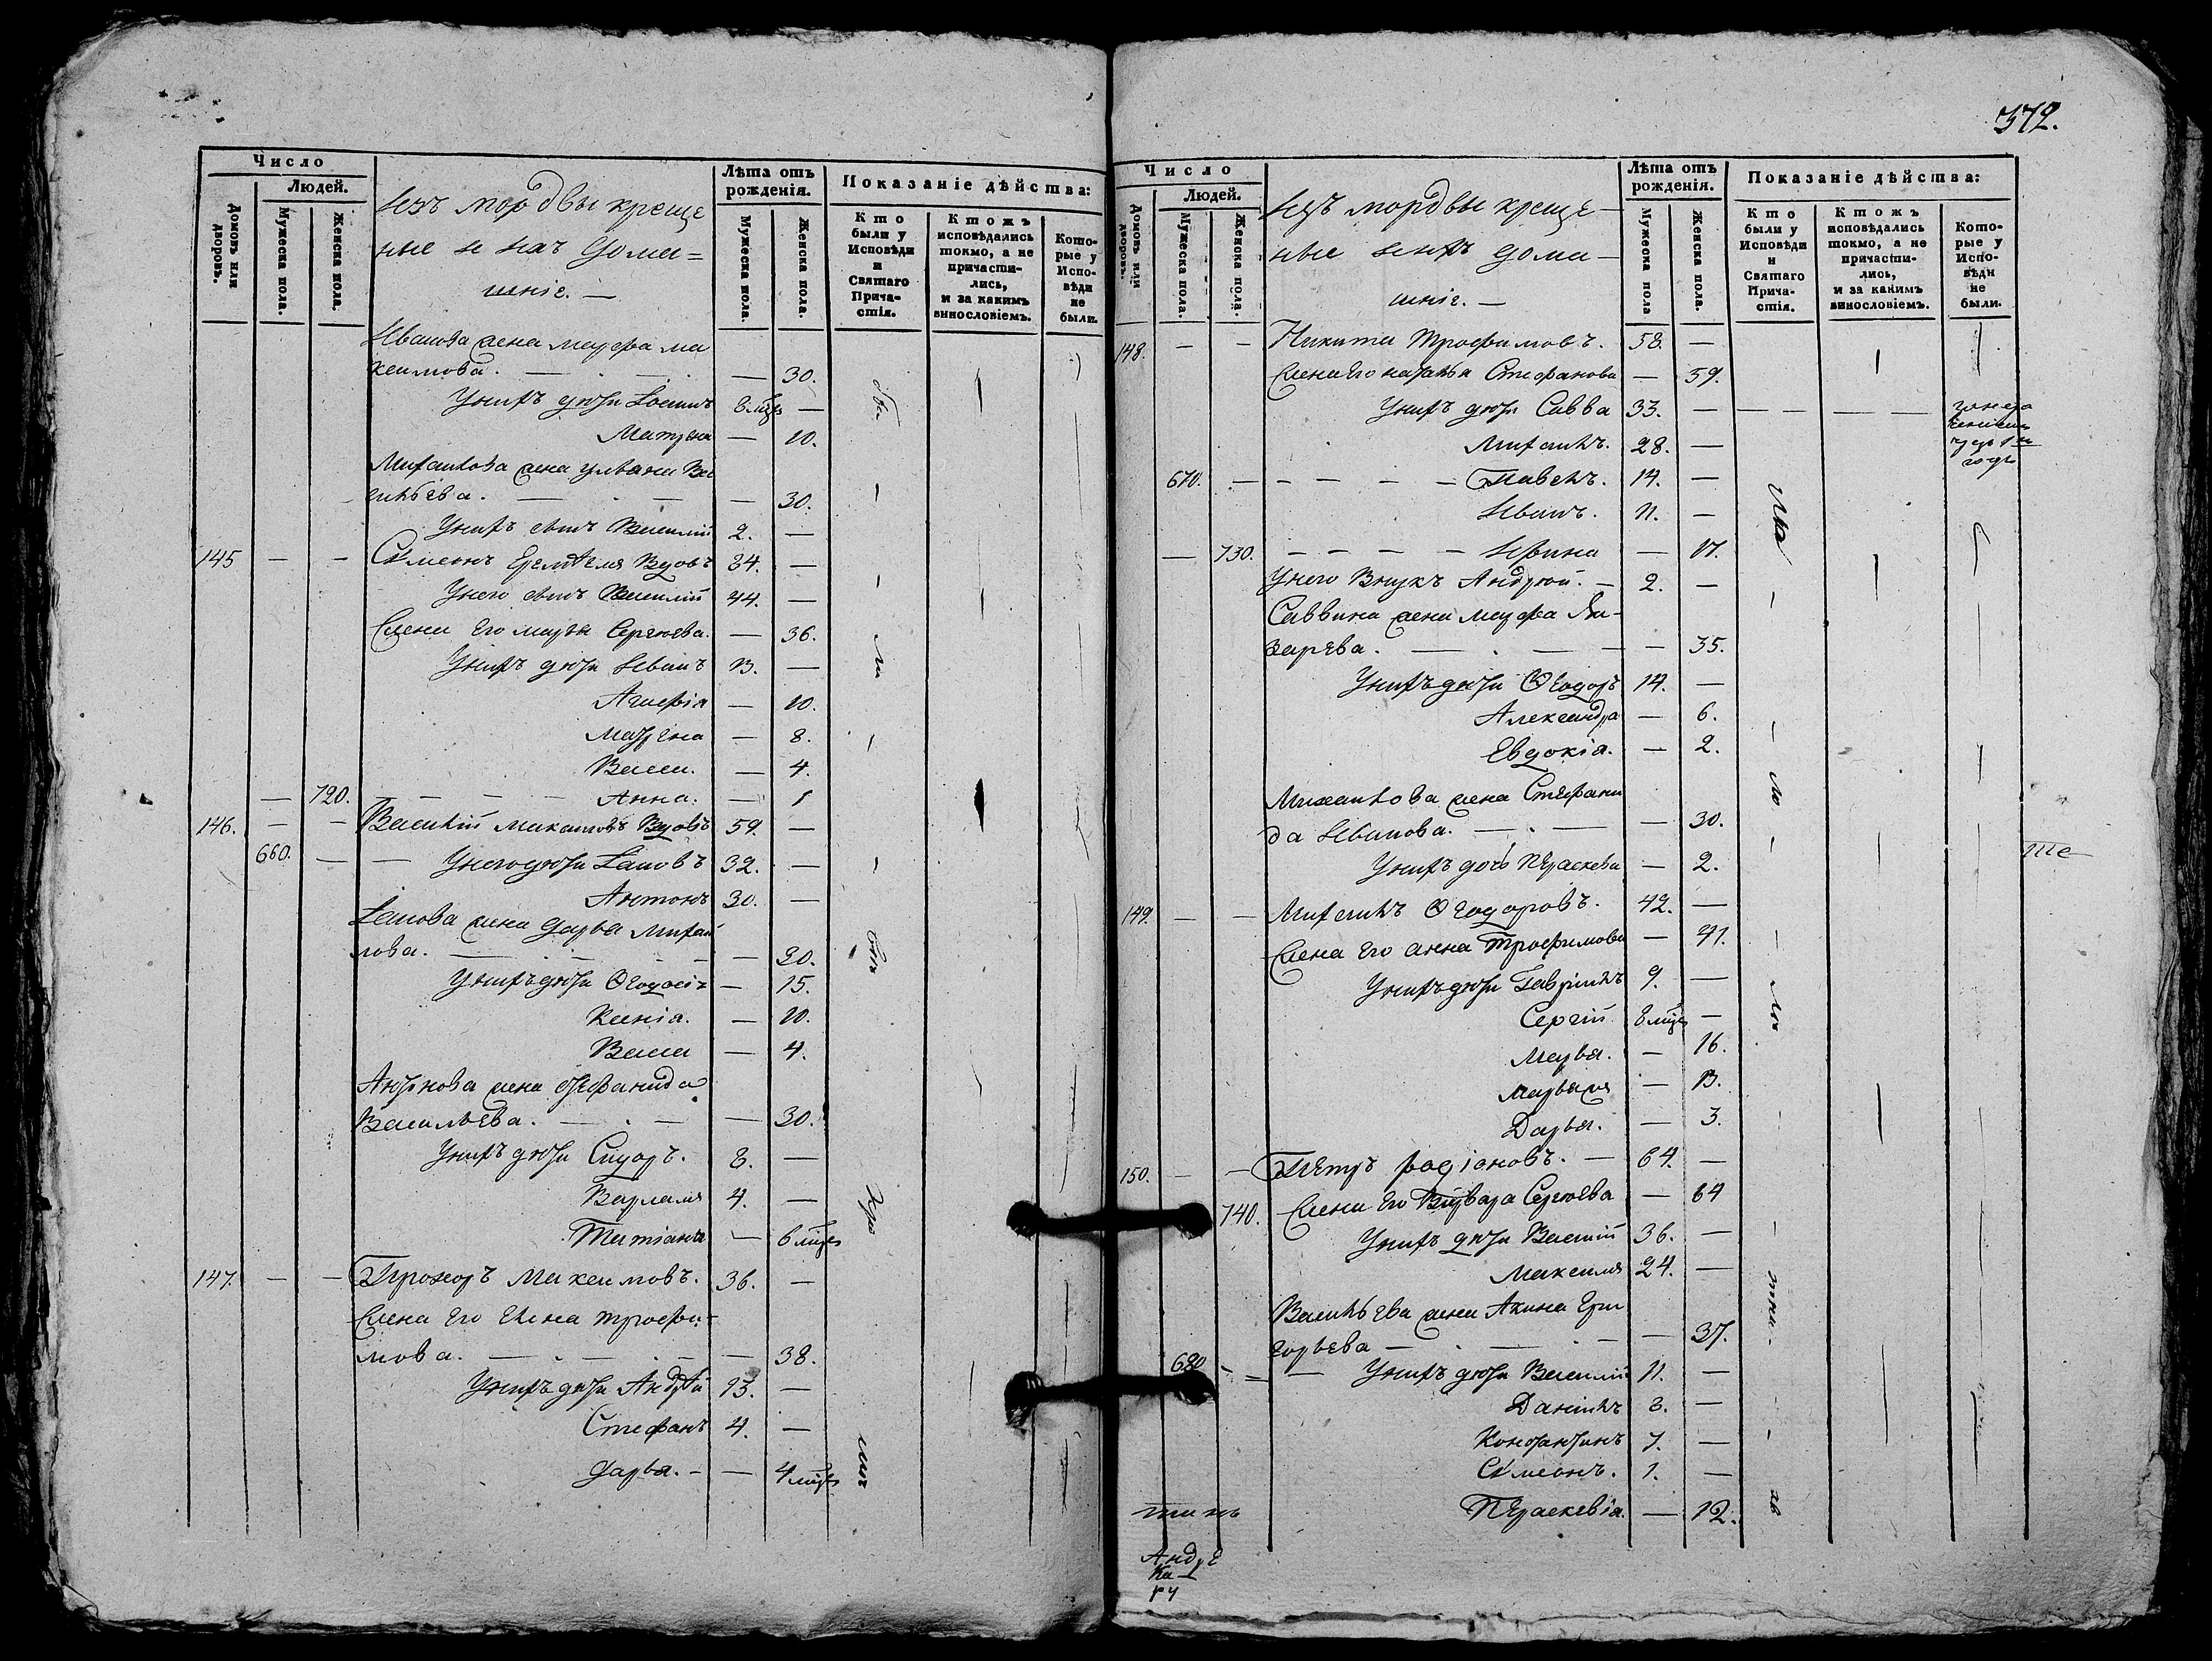 372.
Число
Людей.
Домовъ или дворовъ.
Мужеска пола.
Женска пола.
Изъ мордвы креще
ные и ихъ дома=
шніе. —
Лѣта отъ рожденія.
Мужеска пола.
Женска пола.
Показаніе дѣйства:
Кто были у Исповѣди и Святаго Причастія.
Ктожъ исповѣдались токмо, а не причастились, и за какимъ винословіемъ.
Которые у Исповѣди не были.
Иванова жена Марфа Ма
ксимова. — — 30.
У нихъ дѣти 8 мцъ —
Матрена — 10.
Михайлова жена Ульяна Ва
сильева. — — 30.
У нихъ сынъ Василій 2. —
145 — — Сѵмеонъ Вдовъ 84. —
У него сынъ Василій 44. —
Жена его Марья Сергѣева. — 36.
У нихъ дѣти Иванъ 13. —
Агафія — 10.
Матрена — 8.
Васса. — 4.
— 720. — Анна. — 1
146. — — Василій Максимовъ Вдовъ 59. —
660. — — У него дѣти Іаковъ 32. —
Антонъ 30. —
Іакова жена Дарья Михай
лова. — — 30.
У нихъ дѣти — 15.
Ксенія. — 10.
Васса — 4.
Антонова жена Стефанида
Васильева. — — 30.
У нихъ дѣти Сидоръ. 8. —
Варламъ 4. —
Татіана — 6 мцъ
147. — — Прохоръ Максимовъ. 36. —
Жена его Елена Трофи-
мова. — — 38.
У нихъ дѣти Андрѣй 13. —
Стефанъ 4. —
Дарья. — — 4 мцъ
Число
Людей.
Домовъ или дворовъ.
Мужеска пола.
Женска пола.
Изъ мордвы креще-
ные и ихъ дома-
шніе. —
Лѣта отъ рожденія.
Мужеска пола
Женска пола.
Показаніе дѣйства:
Кто были у Исповѣди и Святаго Причастія.
Ктожъ исповѣдались токмо, а не причастились, и за какимъ винословіемъ.
Которые у Исповѣди не были.
148. — — Никита Трофимовъ. 58. —
Жена его Наталья Стефанова — 59.
У нихъ дѣти Савва 33. —
Михаилъ. 28. —
670. — — Павелъ. 14. —
Иванъ. 11. —
— 730. — Ирина — 17.
У него внукъ Андрей. — 2. —
Саввина жена Марфа Ла-
зарева. — — 35.
У нихъ дѣти Ѳеодоръ 14. —
Александра — 6.
Евдокія. — 2.
Михайлова жена Стефани
да Иванова. — — 30.
У нихъ дочь Параскева — 2.
149. — — Михаилъ Ѳеодоровъ. 42. —
Жена его Анна Трофимова — 41.
У нихъ дѣти Гавріилъ 9. —
Сергій 8 мцъ —
Марья. — 16.
— 13.
Дарья. — 3.
150. — — Петръ Родіоновъ. — 64. —
740. Жена его Варвара Сергѣева — 64
У нихъ дѣти Василій 36. —
Максимъ 24. —
Васильева жена Акина Гри
горьева — — 37.
680 — — У нихъ дѣти Василій 11. —
Даніилъ 8. —
Константинъ 7. —
Сѵмеонъ. 1. —
Параскевія. — 12.